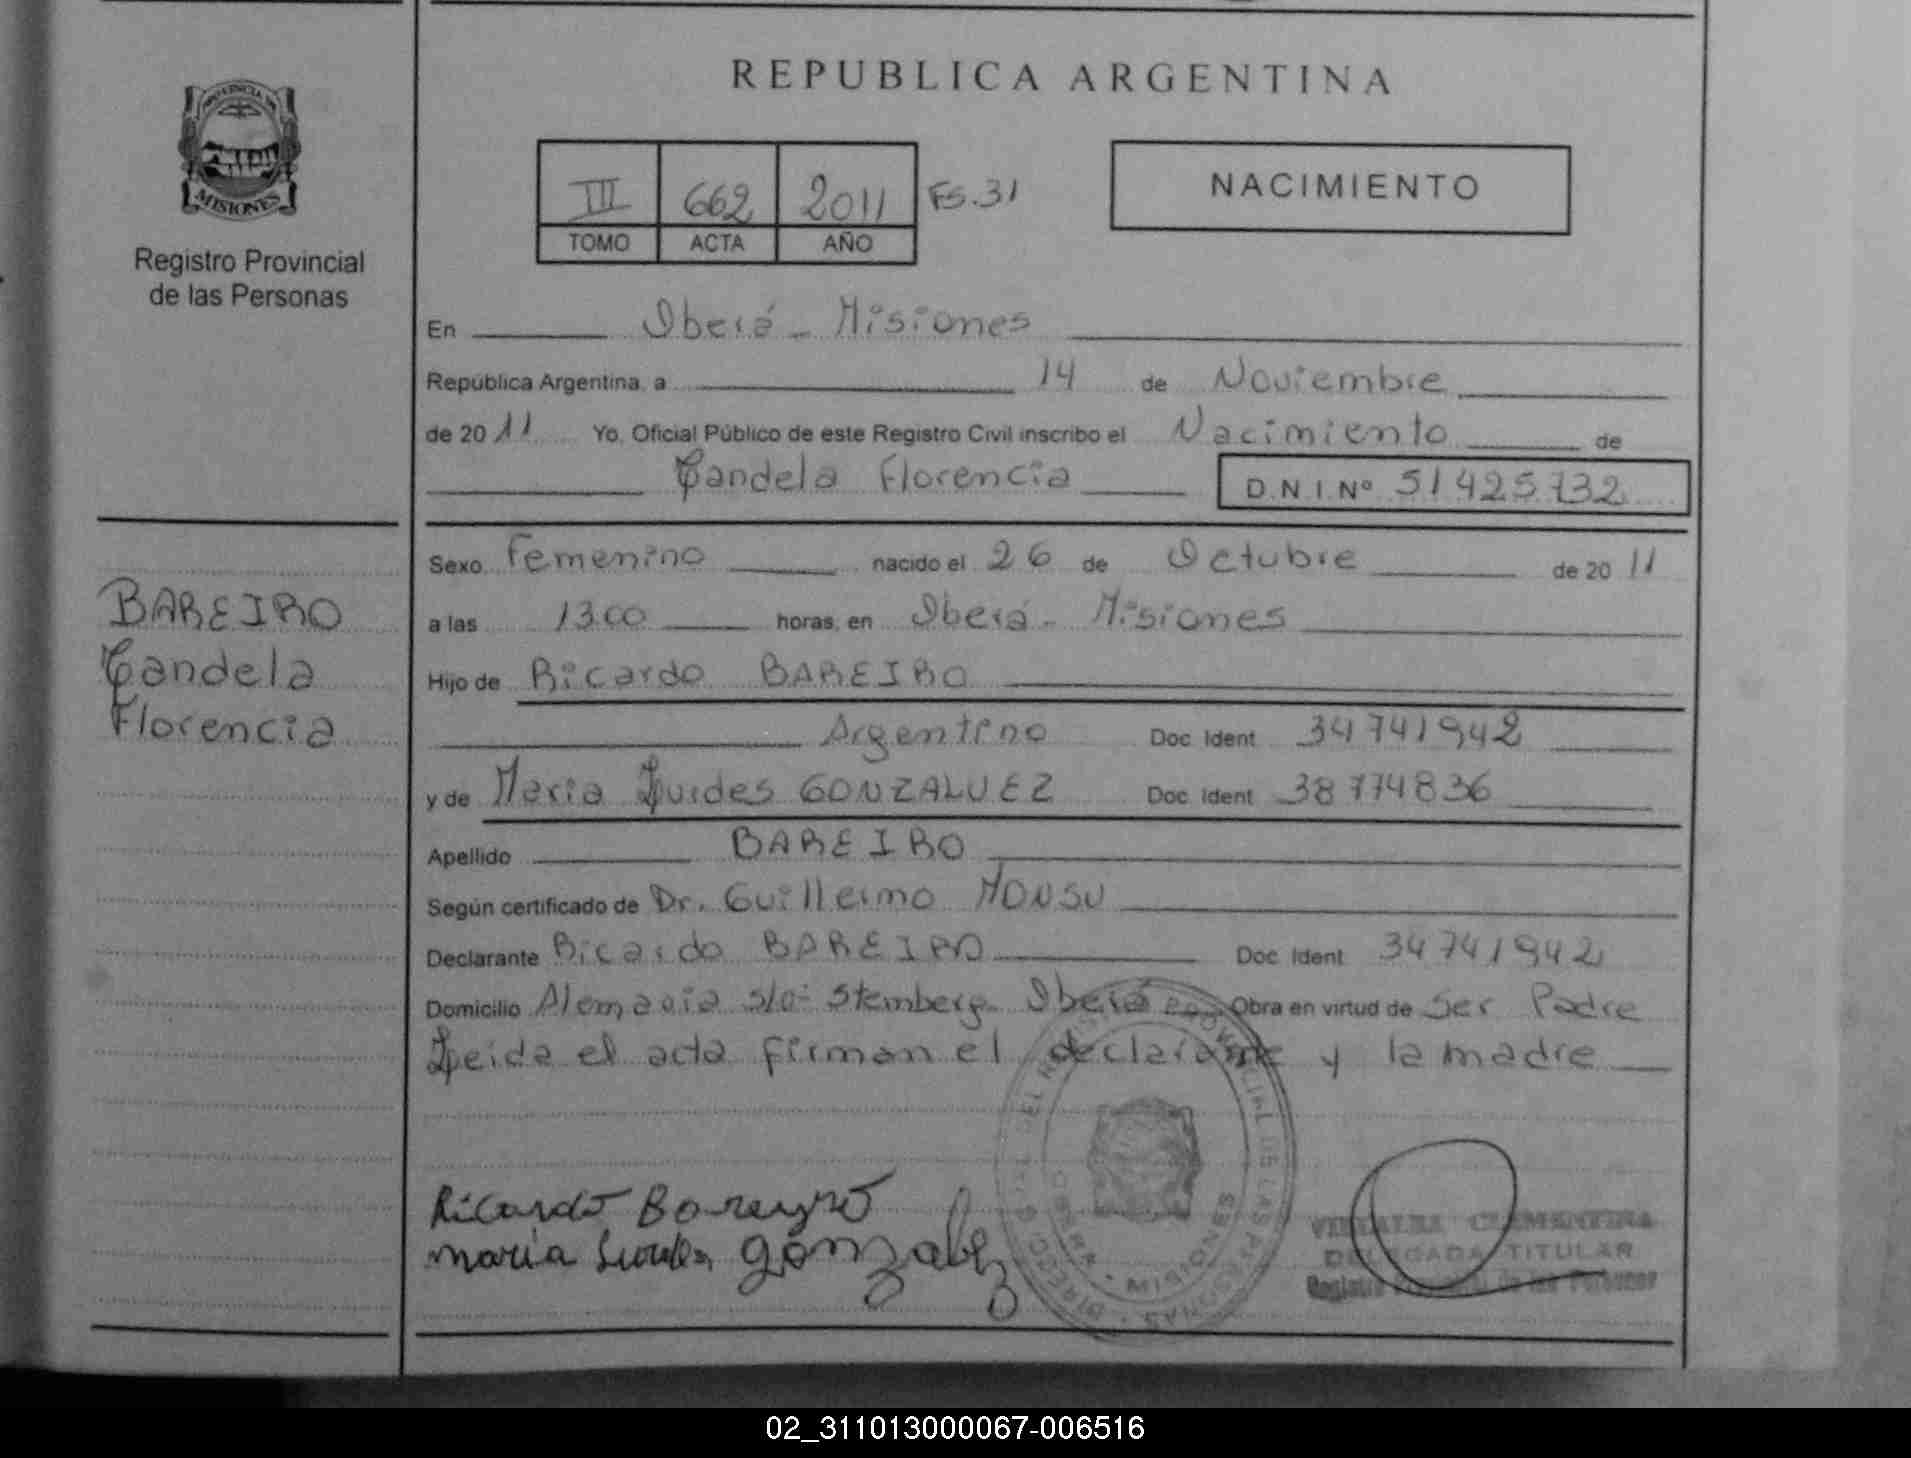 REPUBLICA ARGENTINA
PROVINCIA DE
MISIONES
Registro Provincial
de las Personas
III 662 2011 Fs.31
TOMO ACTA AÑO
NACIMIENTO
En Oberá - Misiones
República Argentina, a 14 de Noviembre
de 2011 Yo, Oficial Público de este Registro Civil inscribo el Nacimiento de
Candela Florencia D.N.I.Nº 51425732
Sexo Femenino nacido el 26 de Octubre de 2011
a las 13.00 horas, en Oberá - Misiones
Hijo de Ricardo BAREIRO
Argentino Doc. Ident. 34741942
y de Maria Lurdes GONZALVEZ Doc. Ident. 38774836
Apellido BAREIRO
Según certificado de Dr. Guillermo MONSU
Declarante Ricardo BAREIRO Doc. Ident. 34741942
Domicilio Alemania s/nº Stemberg - Oberá Obra en virtud de Ser Padre
Leida el acta firman el declarante y la madre
BAREIRO
Candela
Florencia
Ricardo Bareyro
maria Lurdes gonzalez
DIRECCION DEL REGISTRO PROVINCIAL DE LAS PERSONAS
OBERA - MISIONES
VILLALBA CLEMENTINA
DELEGADA TITULAR
Registro Provincial de las Personas
02_311013000067-006516